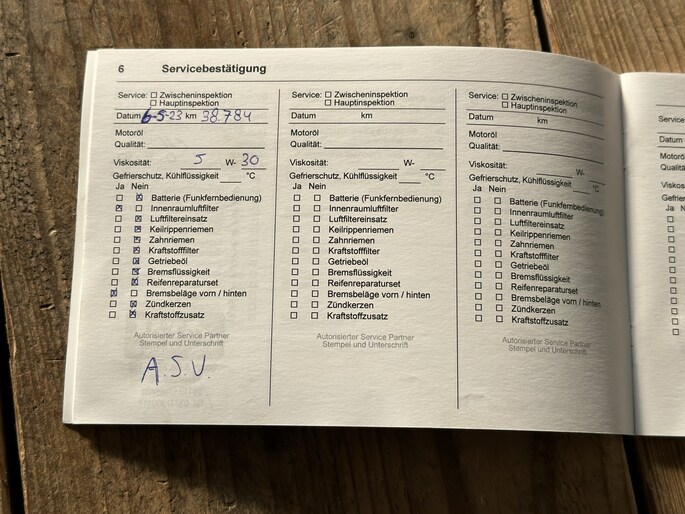 6 Servicebestätigung
Service: ☐ Zwischeninspektion
☐ Hauptinspektion
Datum 6-5-23 km 38.784
Motoröl
Qualität:
Viskosität: 5 W- 30
Gefrierschutz, Kühlflüssigkeit °C
Ja Nein
☐ ☒ Batterie (Funkfernbedienung)
☒ ☐ Innenraumluftfilter
☐ ☒ Luftfiltereinsatz
☐ ☒ Keilrippenriemen
☐ ☒ Zahnriemen
☐ ☒ Kraftstofffilter
☐ ☒ Getriebeöl
☐ ☒ Bremsflüssigkeit
☐ ☒ Reifenreparaturset
☒ ☐ Bremsbeläge vorn / hinten
☐ ☒ Zündkerzen
☐ ☒ Kraftstoffzusatz
Autorisierter Service Partner
Stempel und Unterschrift
A.S.V.
Service: ☐ Zwischeninspektion
☐ Hauptinspektion
Datum km
Motoröl
Qualität:
Viskosität: W-
Gefrierschutz, Kühlflüssigkeit °C
Ja Nein
☐ ☐ Batterie (Funkfernbedienung)
☐ ☐ Innenraumluftfilter
☐ ☐ Luftfiltereinsatz
☐ ☐ Keilrippenriemen
☐ ☐ Zahnriemen
☐ ☐ Kraftstofffilter
☐ ☐ Getriebeöl
☐ ☐ Bremsflüssigkeit
☐ ☐ Reifenreparaturset
☐ ☐ Bremsbeläge vorn / hinten
☐ ☐ Zündkerzen
☐ ☐ Kraftstoffzusatz
Autorisierter Service Partner
Stempel und Unterschrift
Service: ☐ Zwischeninspektion
☐ Hauptinspektion
Datum km
Motoröl
Qualität:
Viskosität: W-
Gefrierschutz, Kühlflüssigkeit °C
Ja Nein
☐ ☐ Batterie (Funkfernbedienung)
☐ ☐ Innenraumluftfilter
☐ ☐ Luftfiltereinsatz
☐ ☐ Keilrippenriemen
☐ ☐ Zahnriemen
☐ ☐ Kraftstofffilter
☐ ☐ Getriebeöl
☐ ☐ Bremsflüssigkeit
☐ ☐ Reifenreparaturset
☐ ☐ Bremsbeläge vorn / hinten
☐ ☐ Zündkerzen
☐ ☐ Kraftstoffzusatz
Autorisierter Service Partner
Stempel und Unterschrift
Service
Datum
Ja N